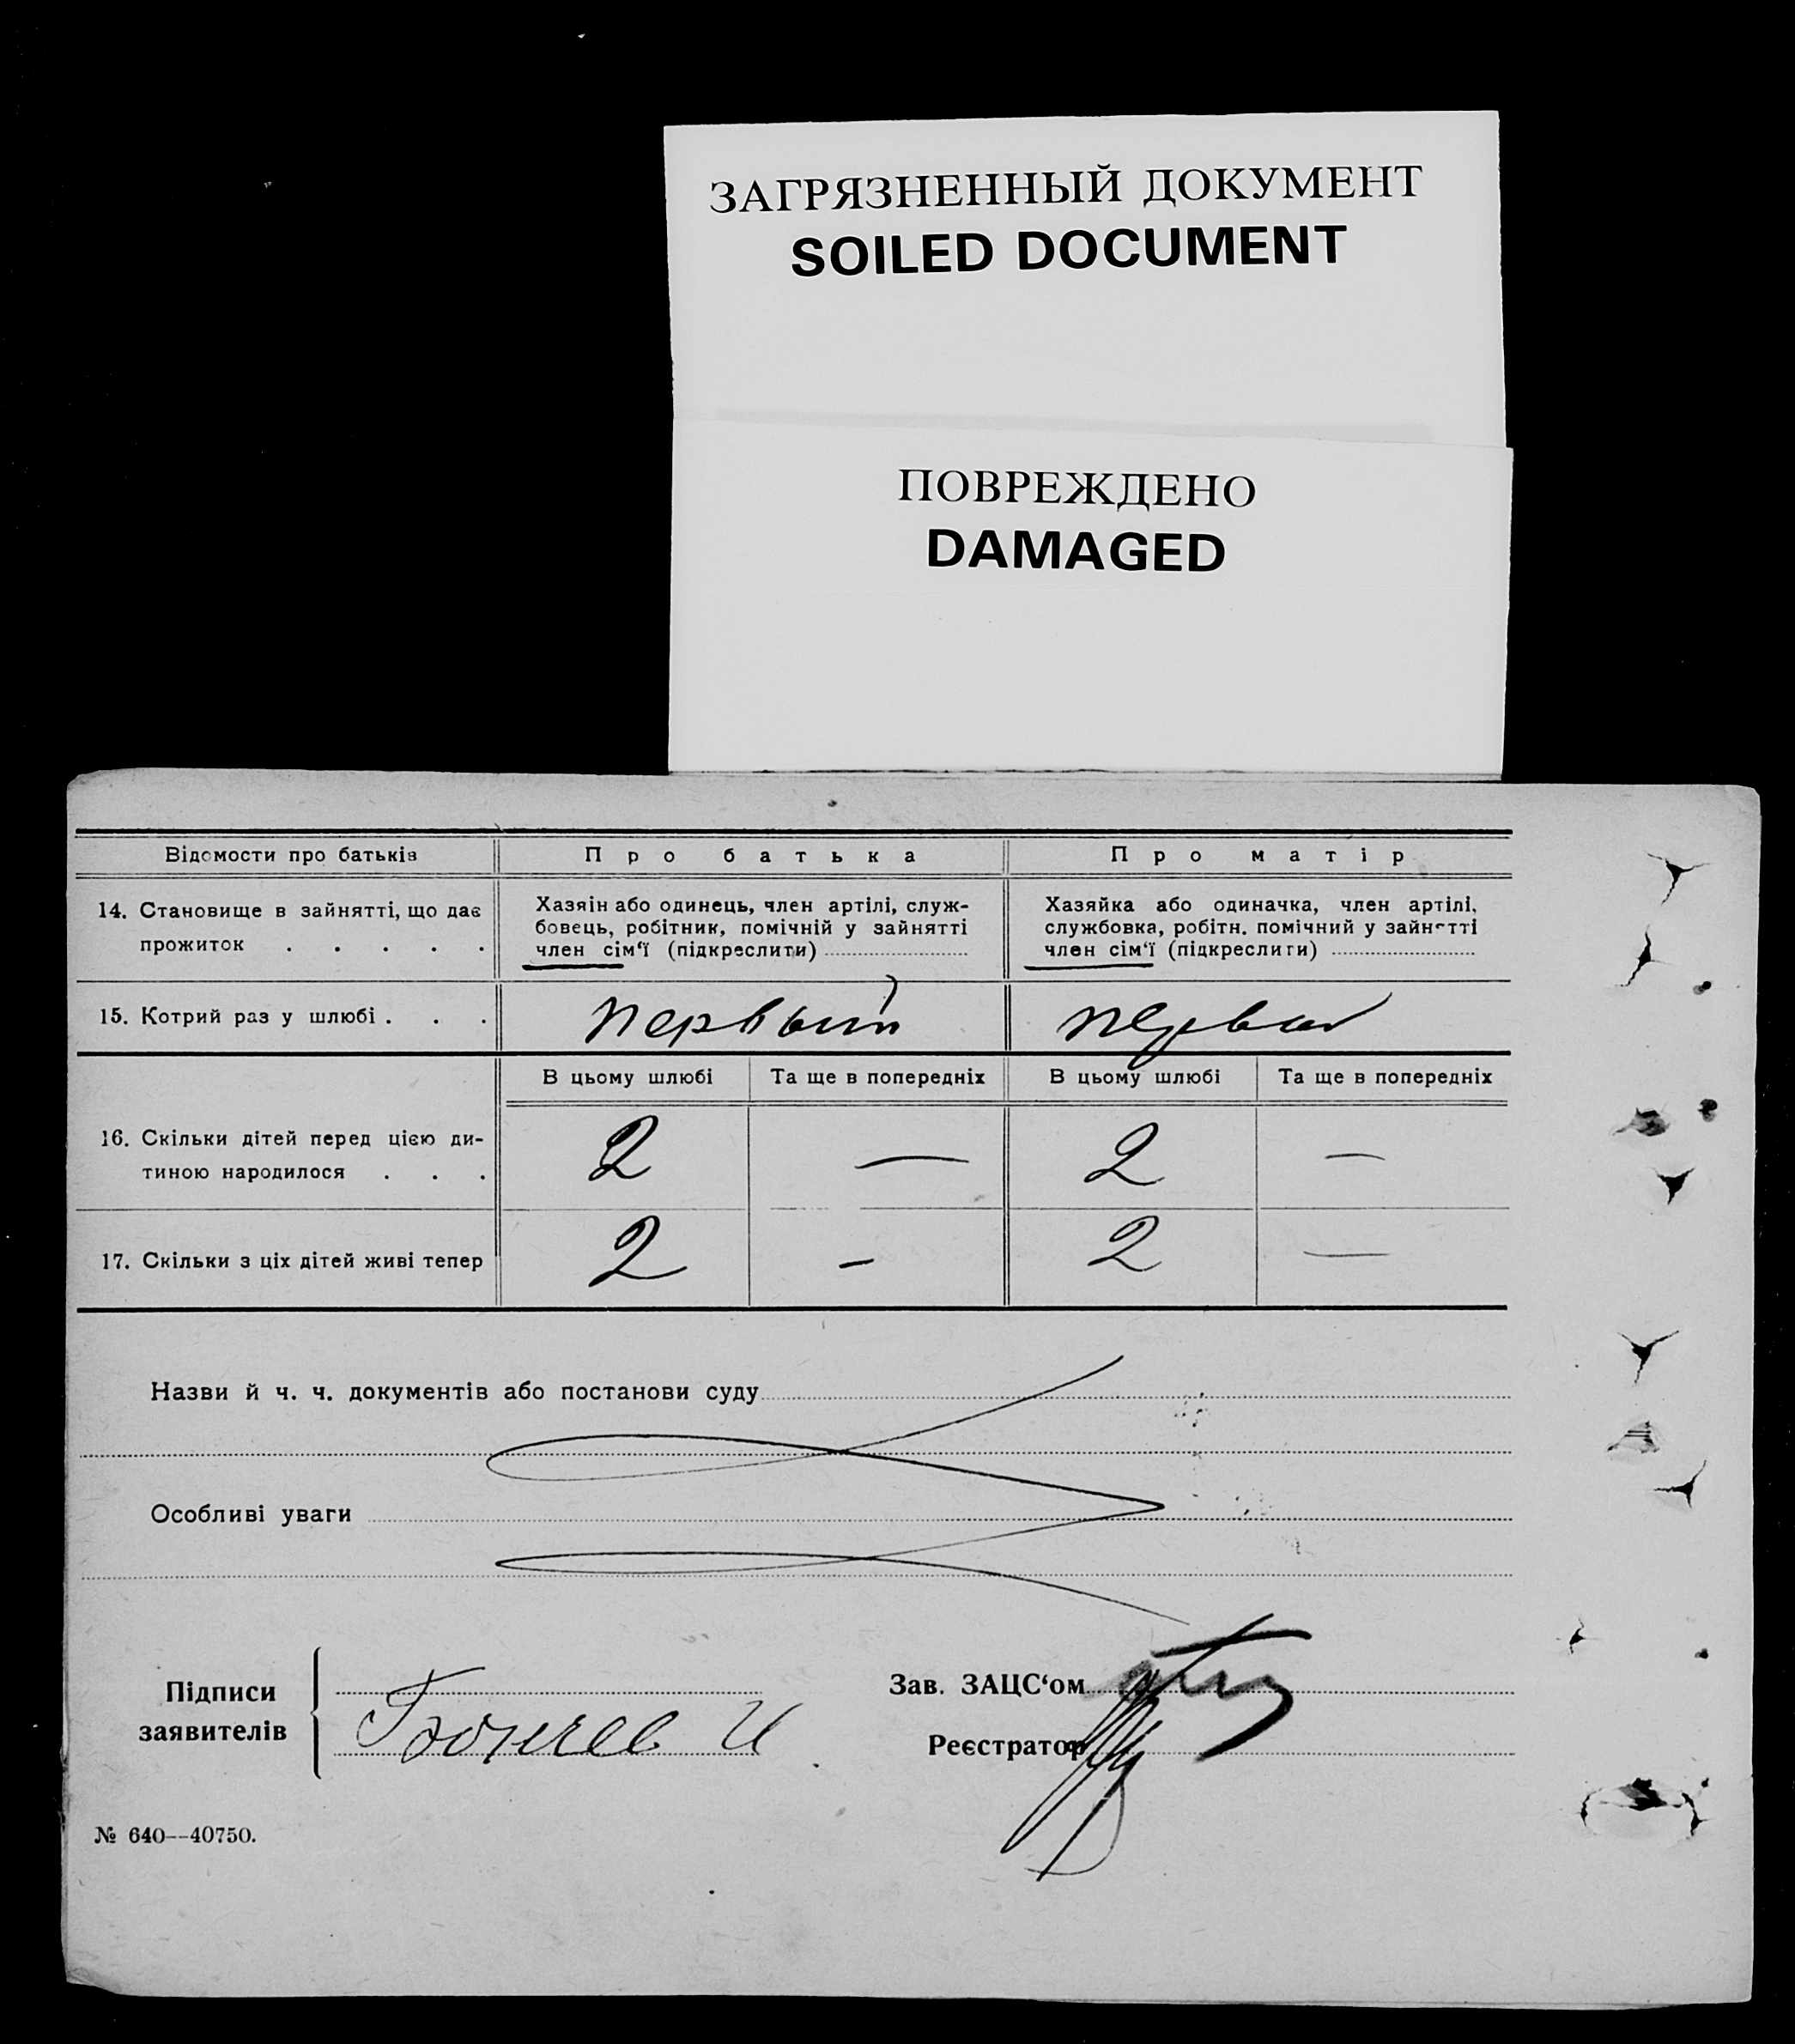 ЗАГРЯЗНЕННЫЙ ДОКУМЕНТ
SOILED DOCUMENT
ПОВРЕЖДЕНО
DAMAGED
Відомости про батьків
Про батька
Про матір
14. Становище в зайнятті, що дає
прожиток . . . . .
Хазяін або одинець, член артілі, служ-
бовець, робітник, помічній у зайнятті
член сім‘ї (підкреслити)
Хазяйка або одиначка, член артілі,
службовка, робітн. помічний у зайнятті
член сім‘ї (підкреслити)
15. Котрий раз у шлюбі . . .
первый
первый
В цьому шлюбі
Та ще в попередніх
В цьому шлюбі
Та ще в попередніх
16. Скільки дітей перед цією ди-
тиною народилося . . .
2
—
2
—
17. Скільки з ціх дітей живі тепер
2
-
2
—
Назви й ч. ч. документів або постанови суду
Особливі уваги
Підписи
заявителів
Зав. ЗАЦС‘ом
Реєстратор
№ 640--40750.